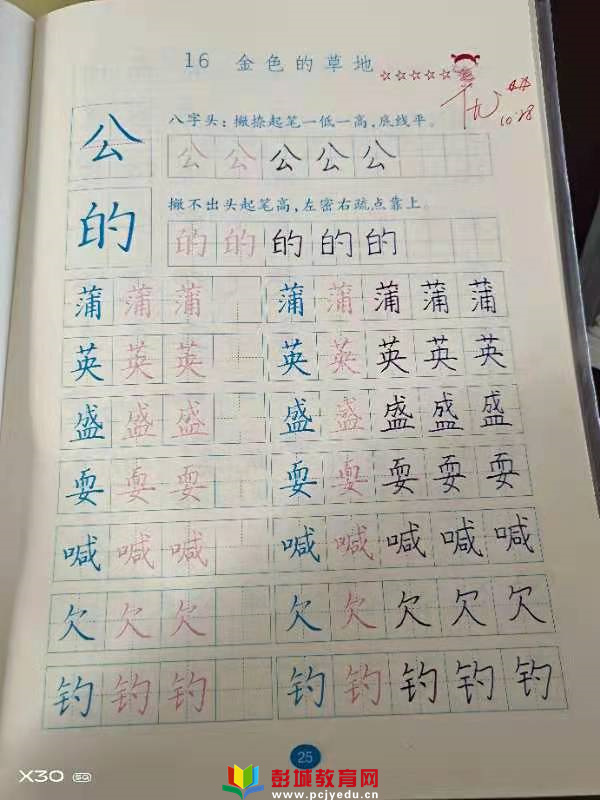 16 金色的草地
优
10.28
公 八字头：撇捺起笔一低一高，底线平。
公 公 公 公 公
的 撇不出头起笔高，左密右疏点靠上。
的 的 的 的 的
蒲 蒲 蒲 蒲 蒲 蒲 蒲 蒲
英 英 英 英 英 英 英 英
盛 盛 盛 盛 盛 盛 盛 盛
耍 耍 耍 耍 耍 耍 耍 耍
喊 喊 喊 喊 喊 喊 喊 喊
欠 欠 欠 欠 欠 欠 欠 欠
钓 钓 钓 钓 钓 钓 钓 钓
25
X30 5G
彭城教育网
www.pcjyedu.cn